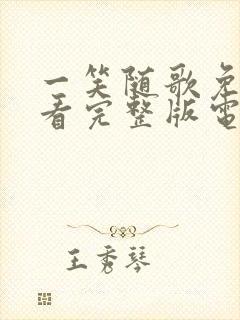 一笑随歌免
看完整版電
王秀琴